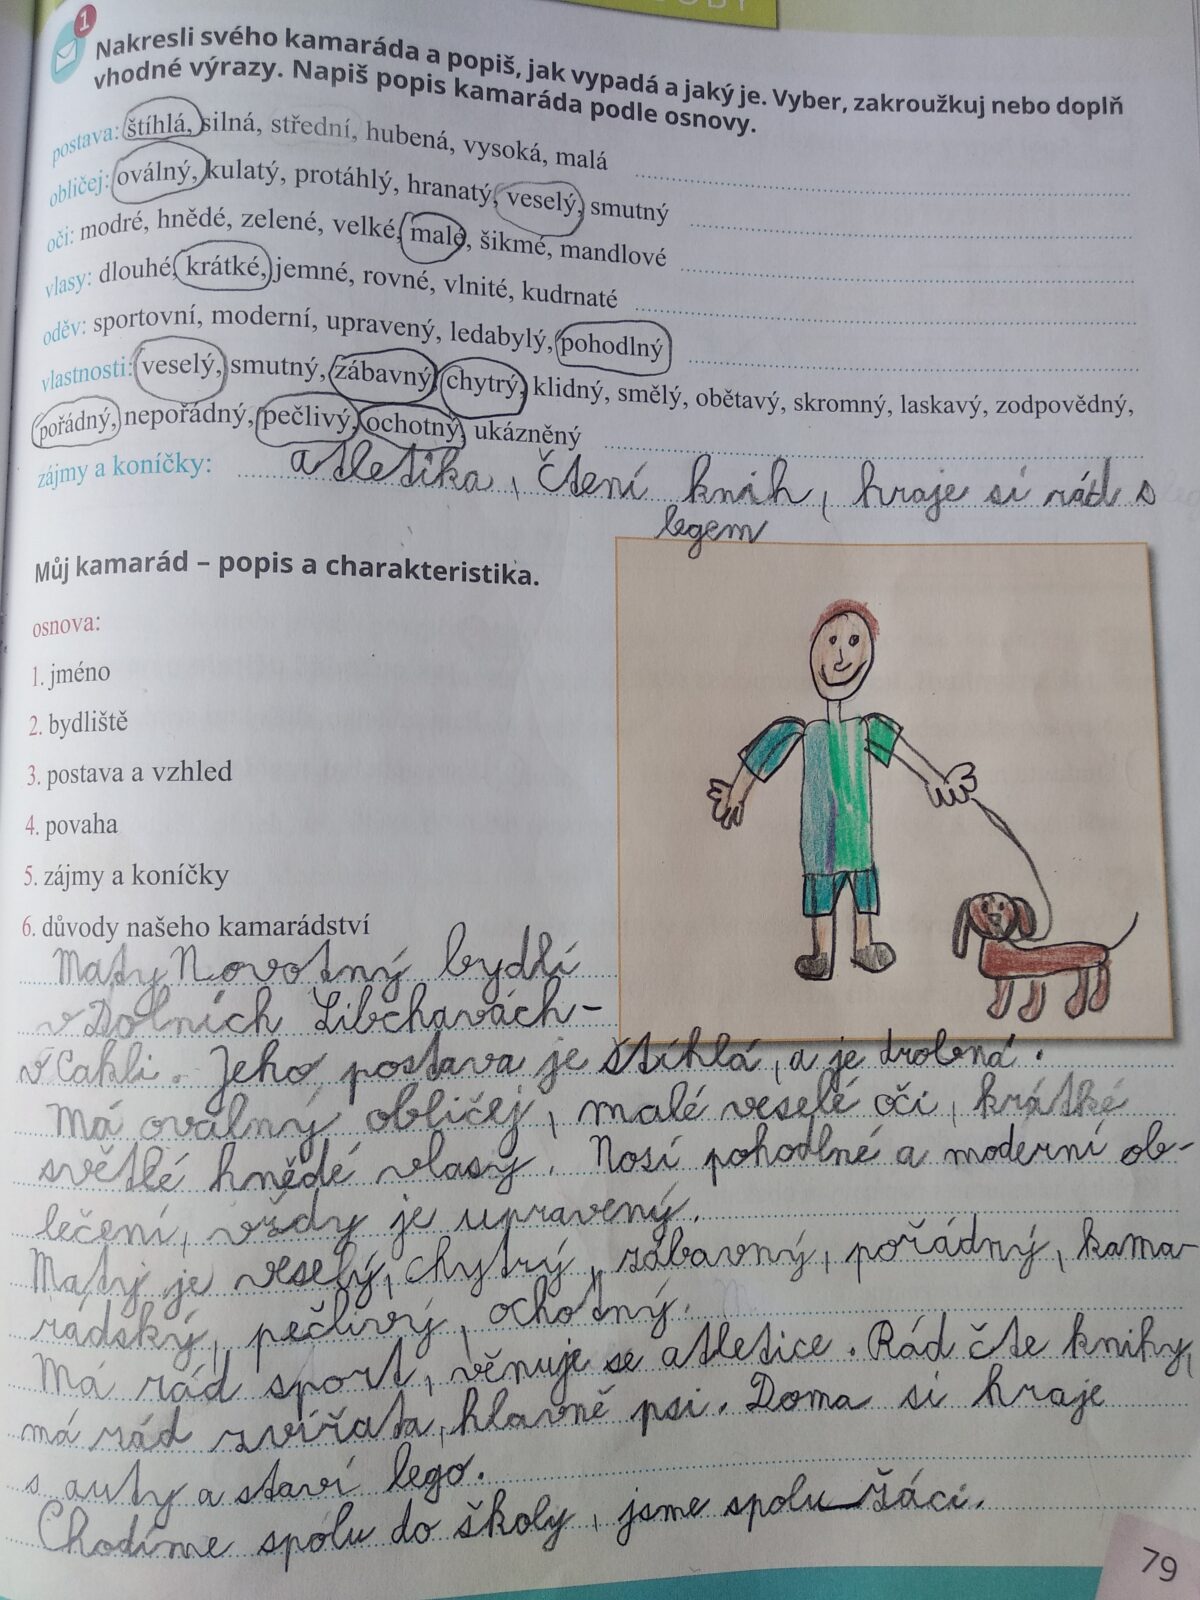 1
Nakresli svého kamaráda a popiš, jak vypadá a jaký je. Vyber, zakroužkuj nebo doplň
vhodné výrazy. Napiš popis kamaráda podle osnovy.
postava: štíhlá, silná, střední, hubená, vysoká, malá
obličej: oválný, kulatý, protáhlý, hranatý, veselý, smutný
oči: modré, hnědé, zelené, velké, malé, šikmé, mandlové
vlasy: dlouhé, krátké, jemné, rovné, vlnité, kudrnaté
oděv: sportovní, moderní, upravený, ledabylý, pohodlný
vlastnosti: veselý, smutný, zábavný, chytrý, klidný, smělý, obětavý, skromný, laskavý, zodpovědný,
pořádný, nepořádný, pečlivý, ochotný, ukázněný
zájmy a koníčky: atletika, čtení knih, hraje si rád s
legem
Můj kamarád – popis a charakteristika.
osnova:
1. jméno
2. bydliště
3. postava a vzhled
4. povaha
5. zájmy a koníčky
6. důvody našeho kamarádství
Maty Novotný bydlí
v Dolních Libchavách-
v Cakli. Jeho postava je štíhlá, a je drobná.
Má oválný obličej, malé veselé oči, krátké
světlé hnědé vlasy. Nosí pohodlné a moderní ob-
lečení, vždy je upravený.
Maty je veselý, chytrý, zábavný, pořádný, kama-
radský, pečlivý, ochotný.
Má rád sport, věnuje se atletice. Rád čte knihy,
má rád zvířata, hlavně psi. Doma si hraje
s auty a staví lego.
Chodíme spolu do školy, jsme spolu žáci.
79